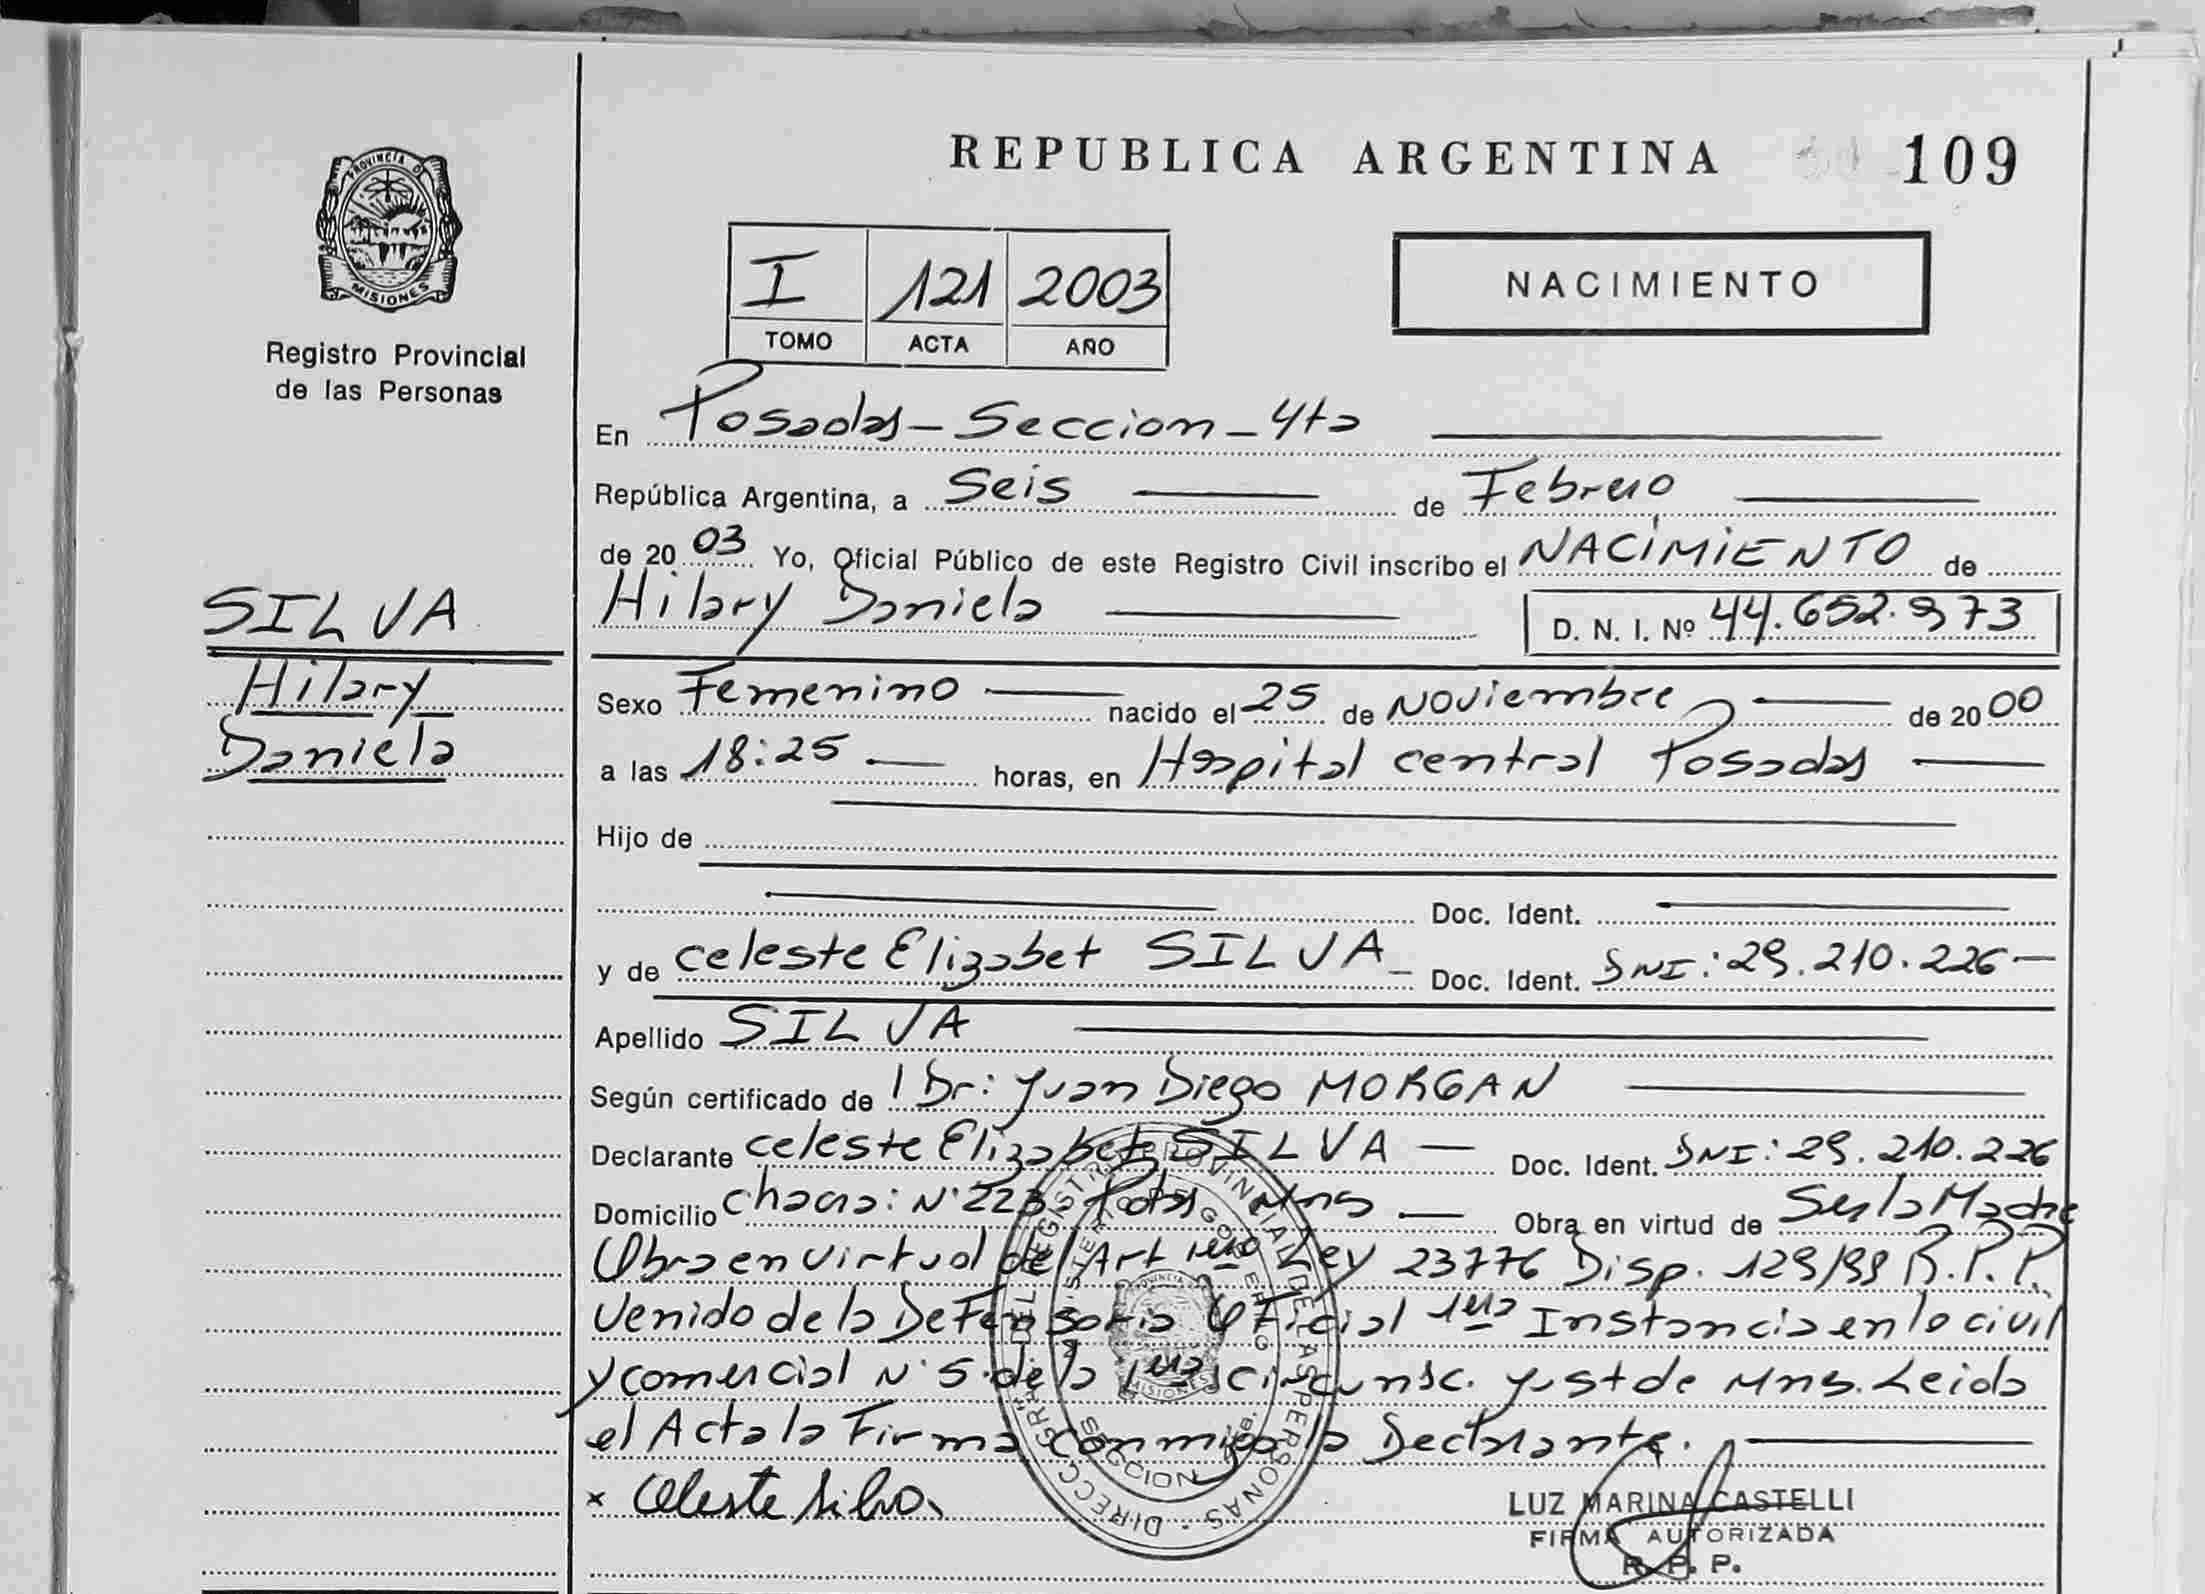 REPUBLICA ARGENTINA 109
PROVINCIA D
MISIONES
Registro Provincial
de las Personas
I 121 2003
TOMO ACTA AÑO
NACIMIENTO
En Posadas - Seccion - 4ta
República Argentina, a Seis de Febrero
de 20 03 Yo, Oficial Público de este Registro Civil inscribo el NACIMIENTO de
Hilary Daniela D. N. I. Nº 44.652.973
SILVA
Hilary
Daniela
Sexo Femenino nacido el 25 de Noviembre de 20 00
a las 18:25 horas, en Hospital central Posadas
Hijo de
Doc. Ident.
y de celeste Elizabet SILVA - Doc. Ident. DNI: 29.210.226-
Apellido SILVA
Según certificado de l Dr: Juan Diego MORGAN
Declarante celeste Elizabet SILVA - Doc. Ident. DNI: 29.210.226
Domicilio chacra: N° 223. Pdas Mns - Obra en virtud de Ser la Madre
Obra en virtud del Art 1ero Ley 23776 Disp. 129/99 R.P.P.
Venido de la Defensoria Oficial 1era Instancia en lo civil
y comercial N° 5 de la 1era circunsc. Just de Mns. Leida
el Acta la Firma conmigo la Declarante.
x Celeste Silva
LUZ MARINA CASTELLI
FIRMA AUTORIZADA
R. P. P.
DIRECC. GRAL. DEL REGISTRO PROVINCIAL DE LAS PERSONAS
SECCION
MISIONES